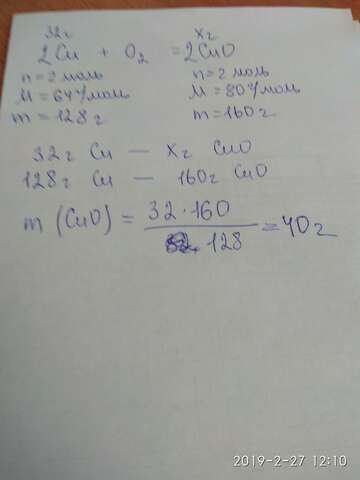 32г xг
2Cu + O₂ = 2CuO
n = 2 моль n = 2 моль
M = 64г/моль M = 80г/моль
m = 128 г m = 160г
32г Cu — xг CuO
128г Cu — 160г CuO
m (CuO) = 32 · 160 / 128 = 40 г
2019-2-27 12:10